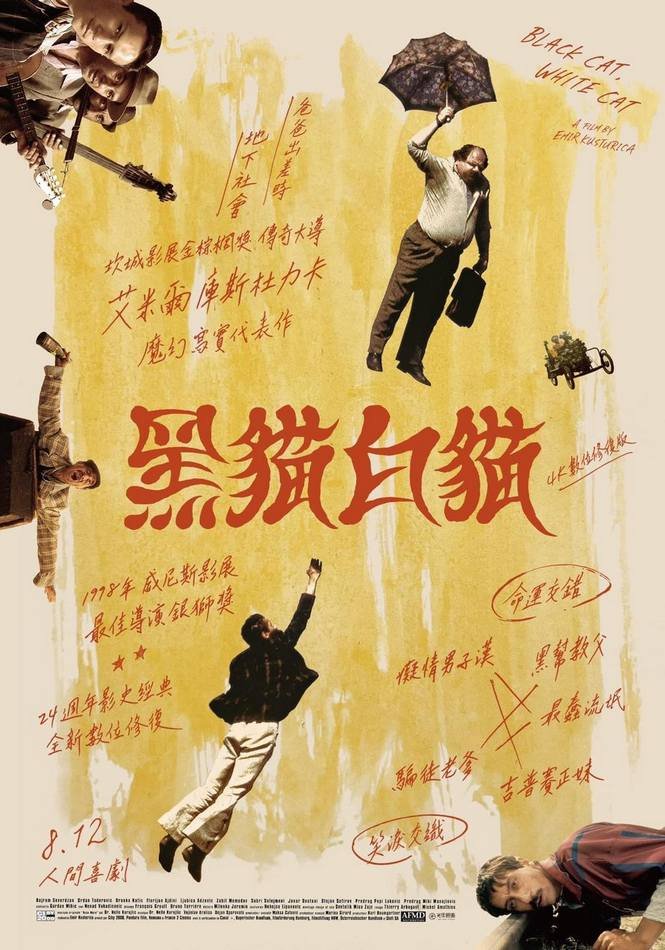 BLACK CAT,
WHITE CAT
A FILM BY
EMIR KUSTURICA
爸爸出差時
地下社會
坎城影展金棕櫚獎 傳奇大導
艾米爾庫斯杜力卡
魔幻寫實代表作
黑貓白貓
4K數位修復版
1998年 威尼斯影展
最佳導演銀獅獎
24週年影史經典
全新數位修復
命運交錯
癡情男子漢
黑幫教父
最蠢流氓
騙徒老爹
吉普賽正妹
笑淚交織
8.12
人間喜劇
AFMD